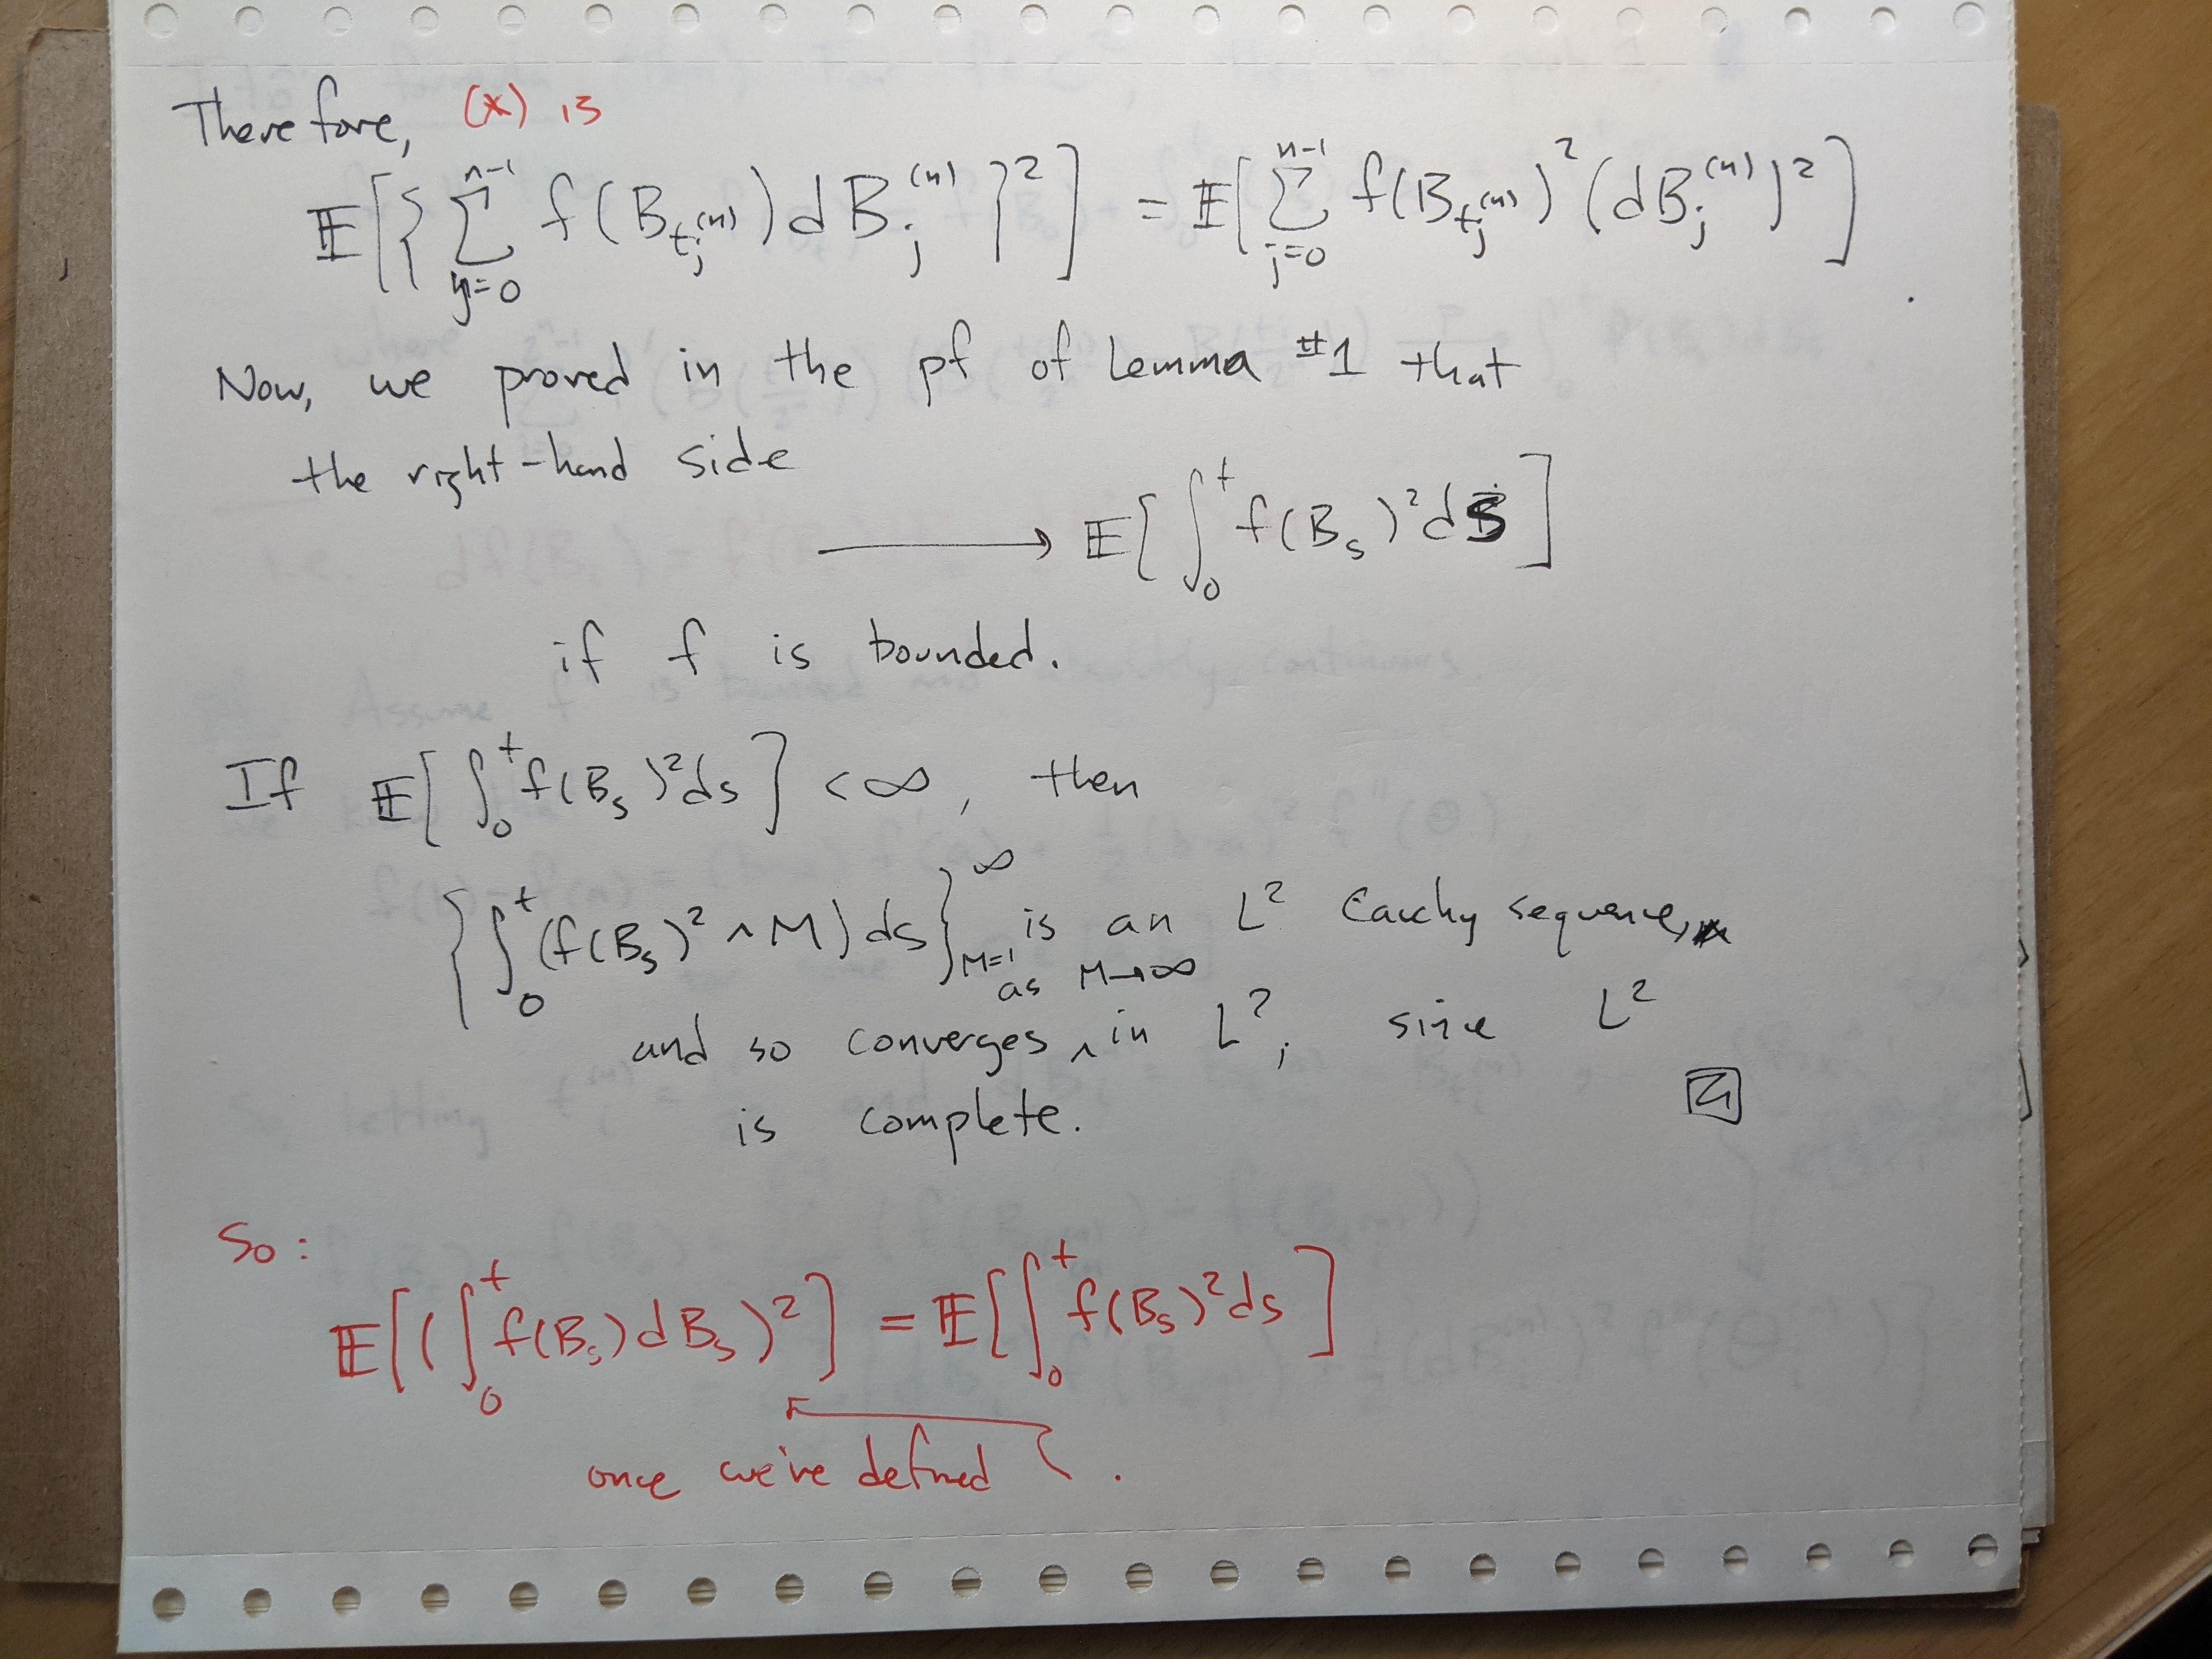 Therefore, (*) is
𝔼[{ ∑_{j=0}^{n-1} f(B_{t_j^{(n)}}) dB_j^{(n)} }²] = 𝔼[ ∑_{j=0}^{n-1} f(B_{t_j^{(n)}})² (dB_j^{(n)})² ]
Now, we proved in the pf of Lemma #1 that
the right-hand side
⟶ 𝔼[ ∫_0^t f(B_s)² ds ]
if f is bounded.
If 𝔼[ ∫_0^t f(B_s)² ds ] < ∞, then
{ ∫_0^t (f(B_s)² ∧ M) ds }_{M=1}^∞ is an L² Cauchy sequence,
as M→∞
and so converges ‸ in L², since L²
is complete.
So:
𝔼[(∫_0^t f(B_s) dB_s)²] = 𝔼[ ∫_0^t f(B_s)² ds ]
once we've defined .